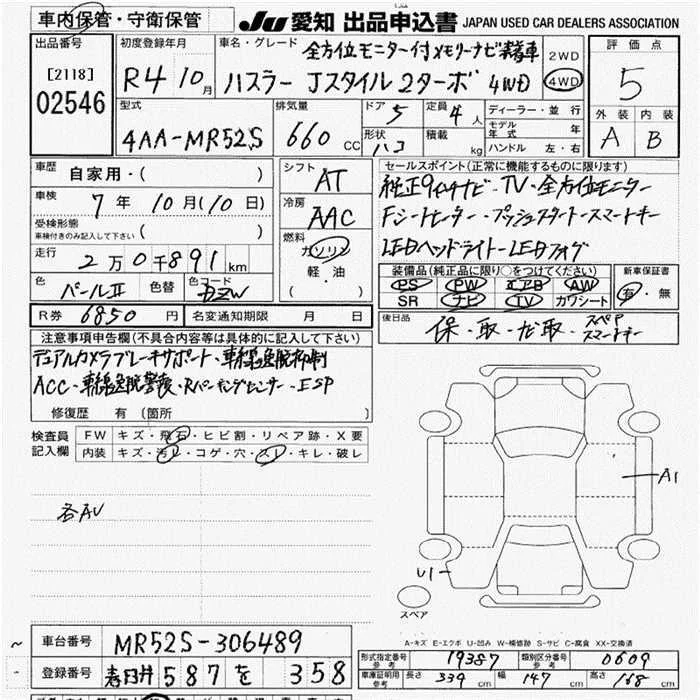 車内保管・守衛保管 JU 愛知 出品申込書 JAPAN USED CAR DEALERS ASSOCIATION
出品番号 [2118] 02546
初度登録年月 R4 10月
車名・グレード 全方位モニター付メモリーナビ装着車
ハスラー Jスタイル2ターボ 4WD
2WD 4WD
評価点 5
外装 A 内装 B
型式 4AA-MR52S
排気量 660 CC
ドア 5 定員 4人
形状 ハコ 積載 kg
ディーラー・並行
モデル年式 年
ハンドル 左・右
車歴 自家用・( )
車検 7年 10月(10日)
受検形態 ( )
車検付きのみ記入して下さい
走行 2万0千891km
色 パールⅡ 色替 色コード BZW
R券 6850円 名変通知期限 月 日
シフト AT
冷房 AAC
燃料 ガソリン
軽・油
( )
セールスポイント(正常に機能するものに限ります)
純正9インチナビ・TV・全方位モニター
Fシートヒーター・プッシュスタート・スマートキー
LEDヘッドライト・LEDフォグ
装備品(純正品に限り○をつけてください) 新車保証書
PS PW エアB AW 有・無
SR ナビ TV カワシート
後日品 保・取・ナビ取・スペアスマートキー
注意事項申告欄(不具合内容等は具体的に記入して下さい)
デュアルカメラブレーキサポート・車線逸脱抑制
ACC・車線逸脱警報・Rパーキングセンサー・ESP
修復歴 有 (箇所 )
検査員記入欄
FW キズ・飛石・ヒビ割・リペア跡・X要
内装 キズ・汚レ・コゲ・穴・スレ・キレ・破レ
各AU
A1
U1
スペア
A-キズ E-エクボ U-凹み W-補修跡 S-サビ C-腐食 XX-交換済
車台番号 MR52S-306489
登録番号 春日井 587 を 358
形式指定番号 参考 19387 類別区分番号 参考 0609
車庫証明用 参考 長さ 339 cm 幅 147 cm 高さ 168 cm